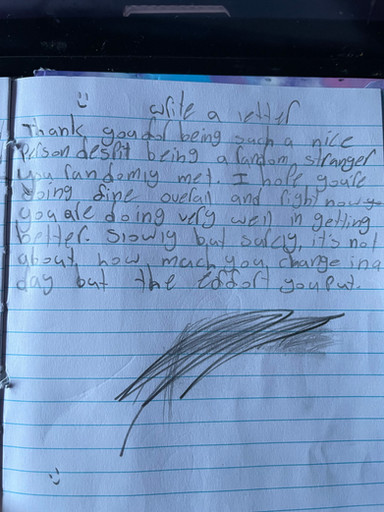 write a letter
Thank you for being such a nice
person despit being a random stranger
you randomly met. I hope you're
doing fine overall and right now
you are doing very well in getting
better. Slowly but surely, it's not
about how much you change in a
day but the effort you put.